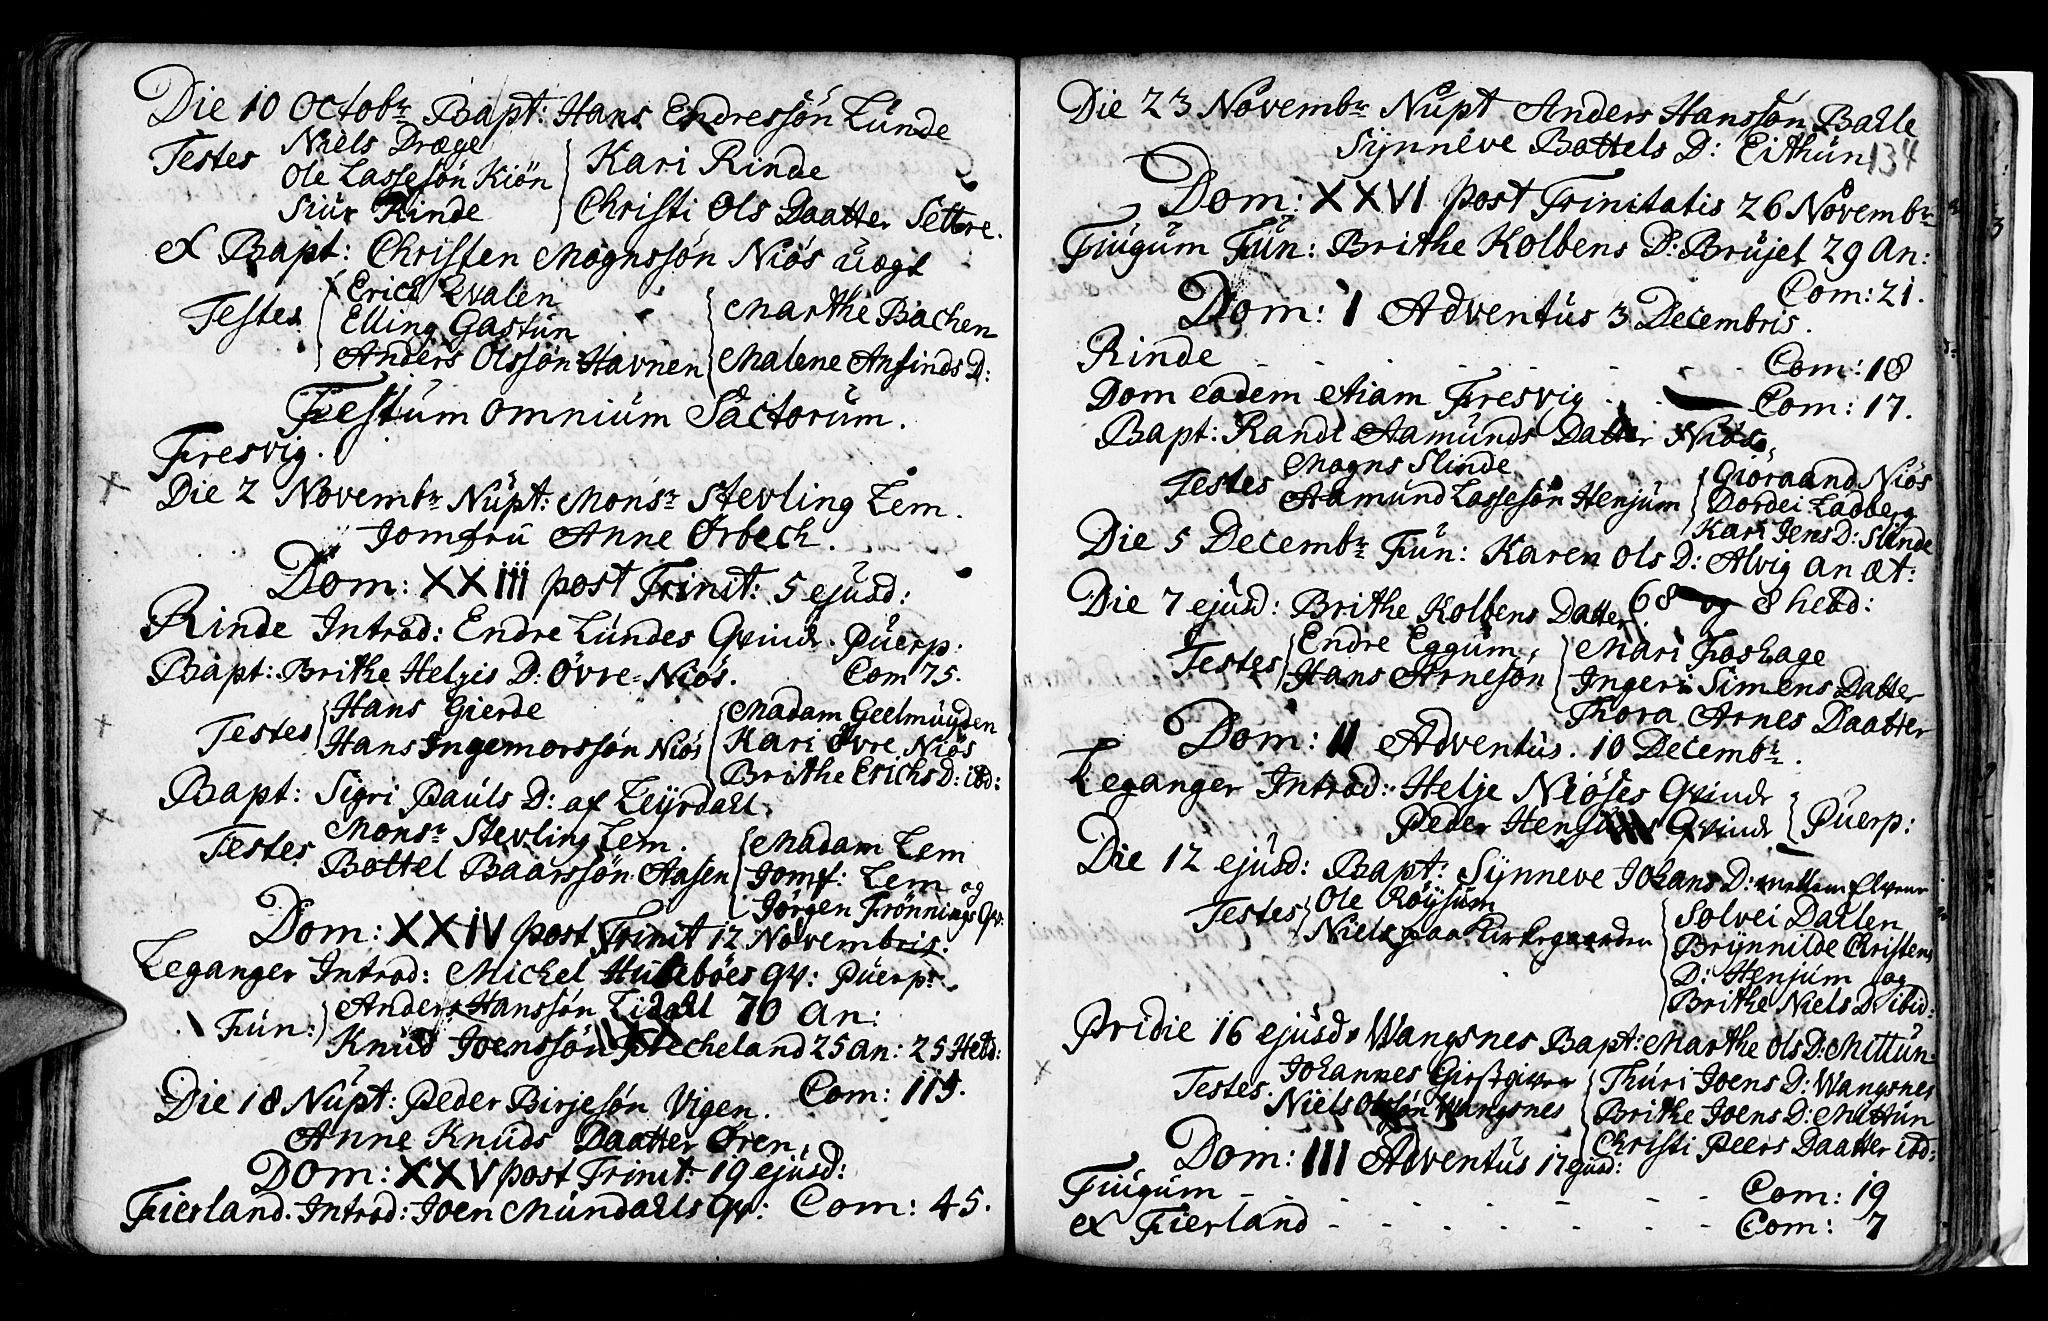 Die 10 Octobr Bapt: Hans Endressøn Lunde
Testes Niels Dræge
Ole Lassesøn Kiøn
Siur Rinde
Kari Rinde
Christi Ols Daatter Settre.
et Bapt: Christen Mognssøn Niøs uægt
Testes Erich Qvalen
Elling Gastun
Anders Olssøn Havnen
Marthe Bachen
Malene Ansinds D:
Festum omnium Sactorum.
Fresvig.
Die 2 Novembr Nupt: Monsr Stevling Lem.
Jomfru Anne Ørbech.
Dom: XXIII post Trinit: 5 ejusd:
Rinde Introd: Endre Lundes Qvinde Puerp:
Bapt: Brithe Helgis D: Øvre-Niøs. Com 75.
Testes Hans Gierde
Hans Ingemorssøn Niøs
Madam Geelmuyden
Kari Øvre Niøs
Brithe Erichs D: ibd:
Bapt: Sigri Pauls D: af Leyrdahl
Testes Monsr Stevling Lem.
Bottel Baarssøn Aasen
Madam Lem
Jomf: Lem og
Jørgen Frønnings Qv:
Dom: XXIV post Trinit 12 Novembris:
Leganger Introd: Michel Husebøes qv: Puerp:
Fun: Anders Hanssøn Lidahl 70 an:
Knud Joenssøn Frecheland 25 an: 25 Hebd:
Com: 115.
Die 18 Nupt: Peder Birjesøn Vigen.
Anne Knuds Daatter Øren.
Dom: XXV post Trinit: 19 ejusd:
Fierland. Introd: Joen Mundahls qv: Com: 45.
Die 23 Novembr Nupt Anders Hanssøn Bahle
Synneve Bottels D: Eithun
134
Dom: XXVI post Trinitatis 26 Novembr
Fiugum Fun: Brithe Kolbens D: Brujet 29 an:
Com: 21.
Dom: 1 Adventus 3 Decembris.
Rinde - - - - - - Com: 18
Dom eadem etiam Fresvig . . Com: 17.
Bapt: Randi Aamunds Datter Niøs
Testes Mogns Slinde
Aamund Lassesøn Henjum
Giøraand Niøs
Dordei Ladberg
Kari Jens D: Slinde
Die 5 Decembr Fun: Karen Ols D: Alvig an æt:
68 og 8 hebd:
Die 7 ejusd: Brithe Kolbens Datter
Testes Endre Eggum
Hans Arnesøn
Mari Foshage
Ingeri Simens Datter
Thora Arnes Daatter
Dom: II Adventus. 10 Decembr.
Leganger Introd: Helje Niøses Qvinde
Peder Henjums Qvinde Puerp:
Die 12 ejusd: Bapt: Synneve Johans D: mellem Elvene
Testes Ole Røysum
Niels paa Kirkegaarden
Solvei Dahlen
Brynnilde Christens
D: Henjum og
Brithe Niels D ibid:
Pridie 16 ejusd: Wangsnes Bapt: Marthe Ols D: Mittun.
Testes. Johannes Giestgiver
Niels Olssøn Wangsnes
Thuri Joens D: Wangsnes
Brithe Joens D: Mittun
Christi Peers Daatter ibd:
Dom: III Adventus 17 ejusd:
Fiugum - - - - - - Com: 19
et Fierland - - - - - - Com: 7